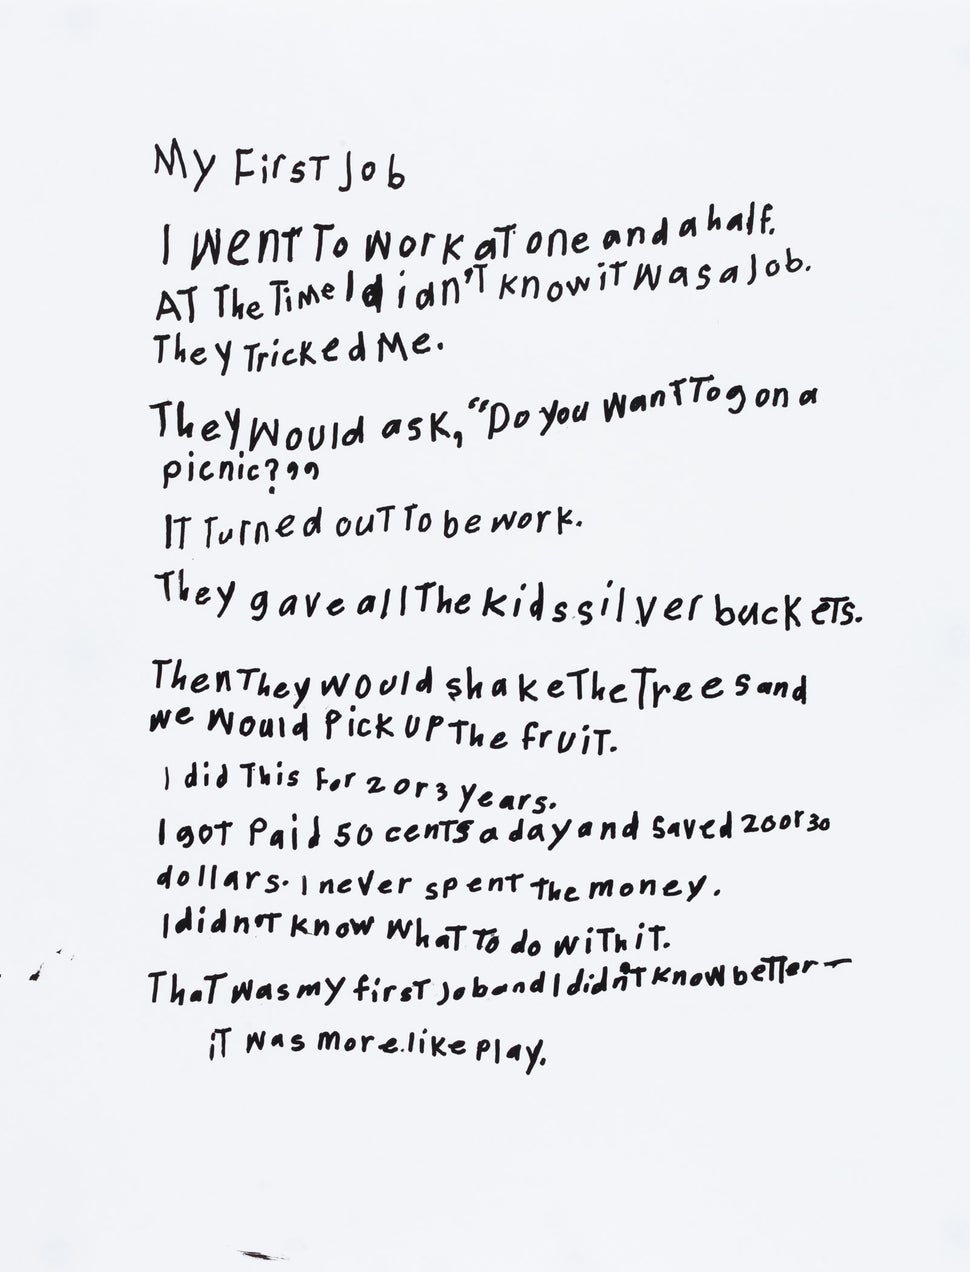 My First Job
I went To work at one and a half.
AT The Time I didn'T know iT was a Job.
They Tricked Me.
They would ask, "Do you want To g on a
picnic?"
IT Turned out To be work.
They gave all The kids silver buckets.
Then They would shake The Trees and
we would Pick up The fruiT.
I did This For 2 or 3 years.
I goT Paid 50 cents a day and saved 20 or 30
dollars. I never spent the money.
I didn't know what To do wiTh iT.
ThaT was my first job and I didn't know better—
iT was more like play.